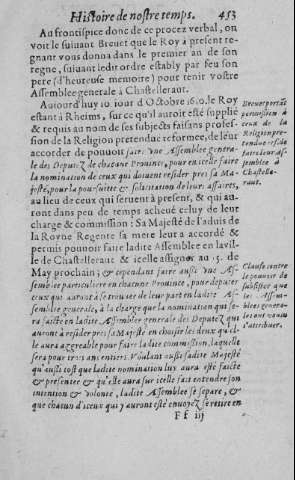 Histoire de nostre temps. 453
Au frontispice donc de ce procez verbal, on
voit le suiuant Breuet que le Roy à present re-
gnant vous donna dans le premier an de son
regne, suiuant ledit ordre estably par feu son
pere (d'heureuse memoire) pour tenir vostre
Assemblee generale à Chastelleraut.
Aujourd'huy 10. iour d'Octobre 1610. le Roy
estant à Rheims, sur ce qu'il auroit esté supplié
& requis au nom de ses subjects faisans profes-
sion de la Religion pretenduë reformee, de leur
accorder de pouuoir faire vne Assemblee genera-
le des Deputez de chacune Prouince, pour en icelle faire
la nomination de ceux qui doiuent resider pres sa Ma-
jesté, pour la poursuitte & solicitation de leur affaires,
au lieu de ceux qui seruent à present, & qui au-
ront dans peu de temps acheué celuy de leur
charge & commission: Sa Majesté de l'aduis de
la Royne Regente sa mere leur a accordé &
permis pouuoir faire ladite Assemblee en la vil-
le de Chastelleraut & icelle assigner au 25. de
May prochain; & cependant faire aussi vne As-
semblee particuliere en chacune Prouince, pour deputer
ceux qui auront à se trouuer de leur part en ladite As-
semblee generale, à la charge que la nomination qui se-
ra faicte en ladite Assemblee generale des Deputez qui
auront à resider pres sa Majesté en choisir les deux qu'el-
le aura agreable pour faire ladite commission, laquelle
sera pour trois ans entiers. Voulant aussi sadite Majesté
qu'aussi tost que ladite nomination luy aura esté faicte
& presentee & qu'elle aura sur icelle fait entendre son
intention & volonté, ladite Assemblee se separe, &
que chacun d'iceux qui y auront esté enuoyez se retire en
Ff iij
Breuet portant
permission à
ceux de la
Religion pre-
tenduë refor.
faire leur As-
semblee à
Chastelle-
raut.
Clause contre
le pouuoir de
subsister que
les Assem-
blees genera-
les ont voulu
s'attribuer.